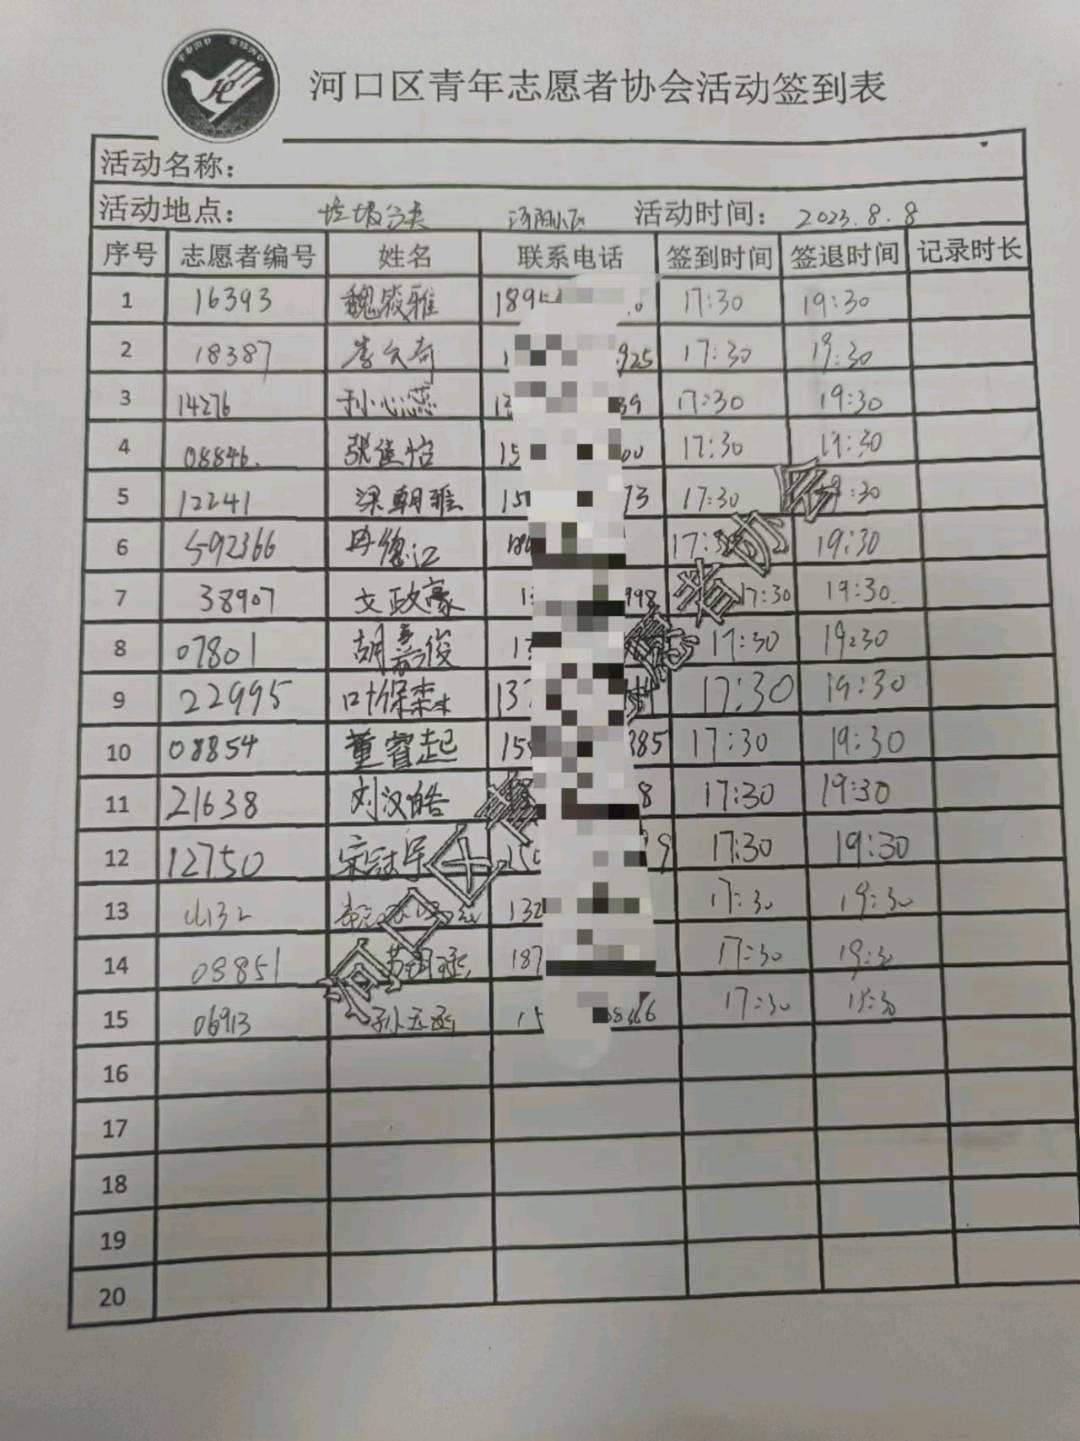 河口区青年志愿者协会活动签到表
活动名称：
活动地点： 垃圾分类 河阳小区 活动时间： 2023.8.8
序号 志愿者编号 姓名 联系电话 签到时间 签退时间 记录时长
1 16393 魏筱雅 189 0 17:30 19:30
2 18387 李久奇 1 925 17:30 19:30
3 14276 孙心蕊 13 39 17:30 19:30
4 08846. 张佳怡 15 00 17:30 19:30
5 12241 梁朝雅 150 73 17:30 :30
6 592366 丹德江 17:30 19:30
7 38907 文政豪 1 998 17:30 19:30.
8 07801 胡嘉俊 13 17:30 19:30
9 22995 叶保森 137 17:30 19:30
10 08854 董睿起 150 385 17:30 19:30
11 21638 刘汉皓 8 17:30 19:30
12 12750 宋冠宇 150 9 17:30 19:30
13 132 17:30 19:30
14 08851 187 17:30 19:30
15 06913 孙云函 15 17:30
16
17
18
19
20
河口区青 愿者协会